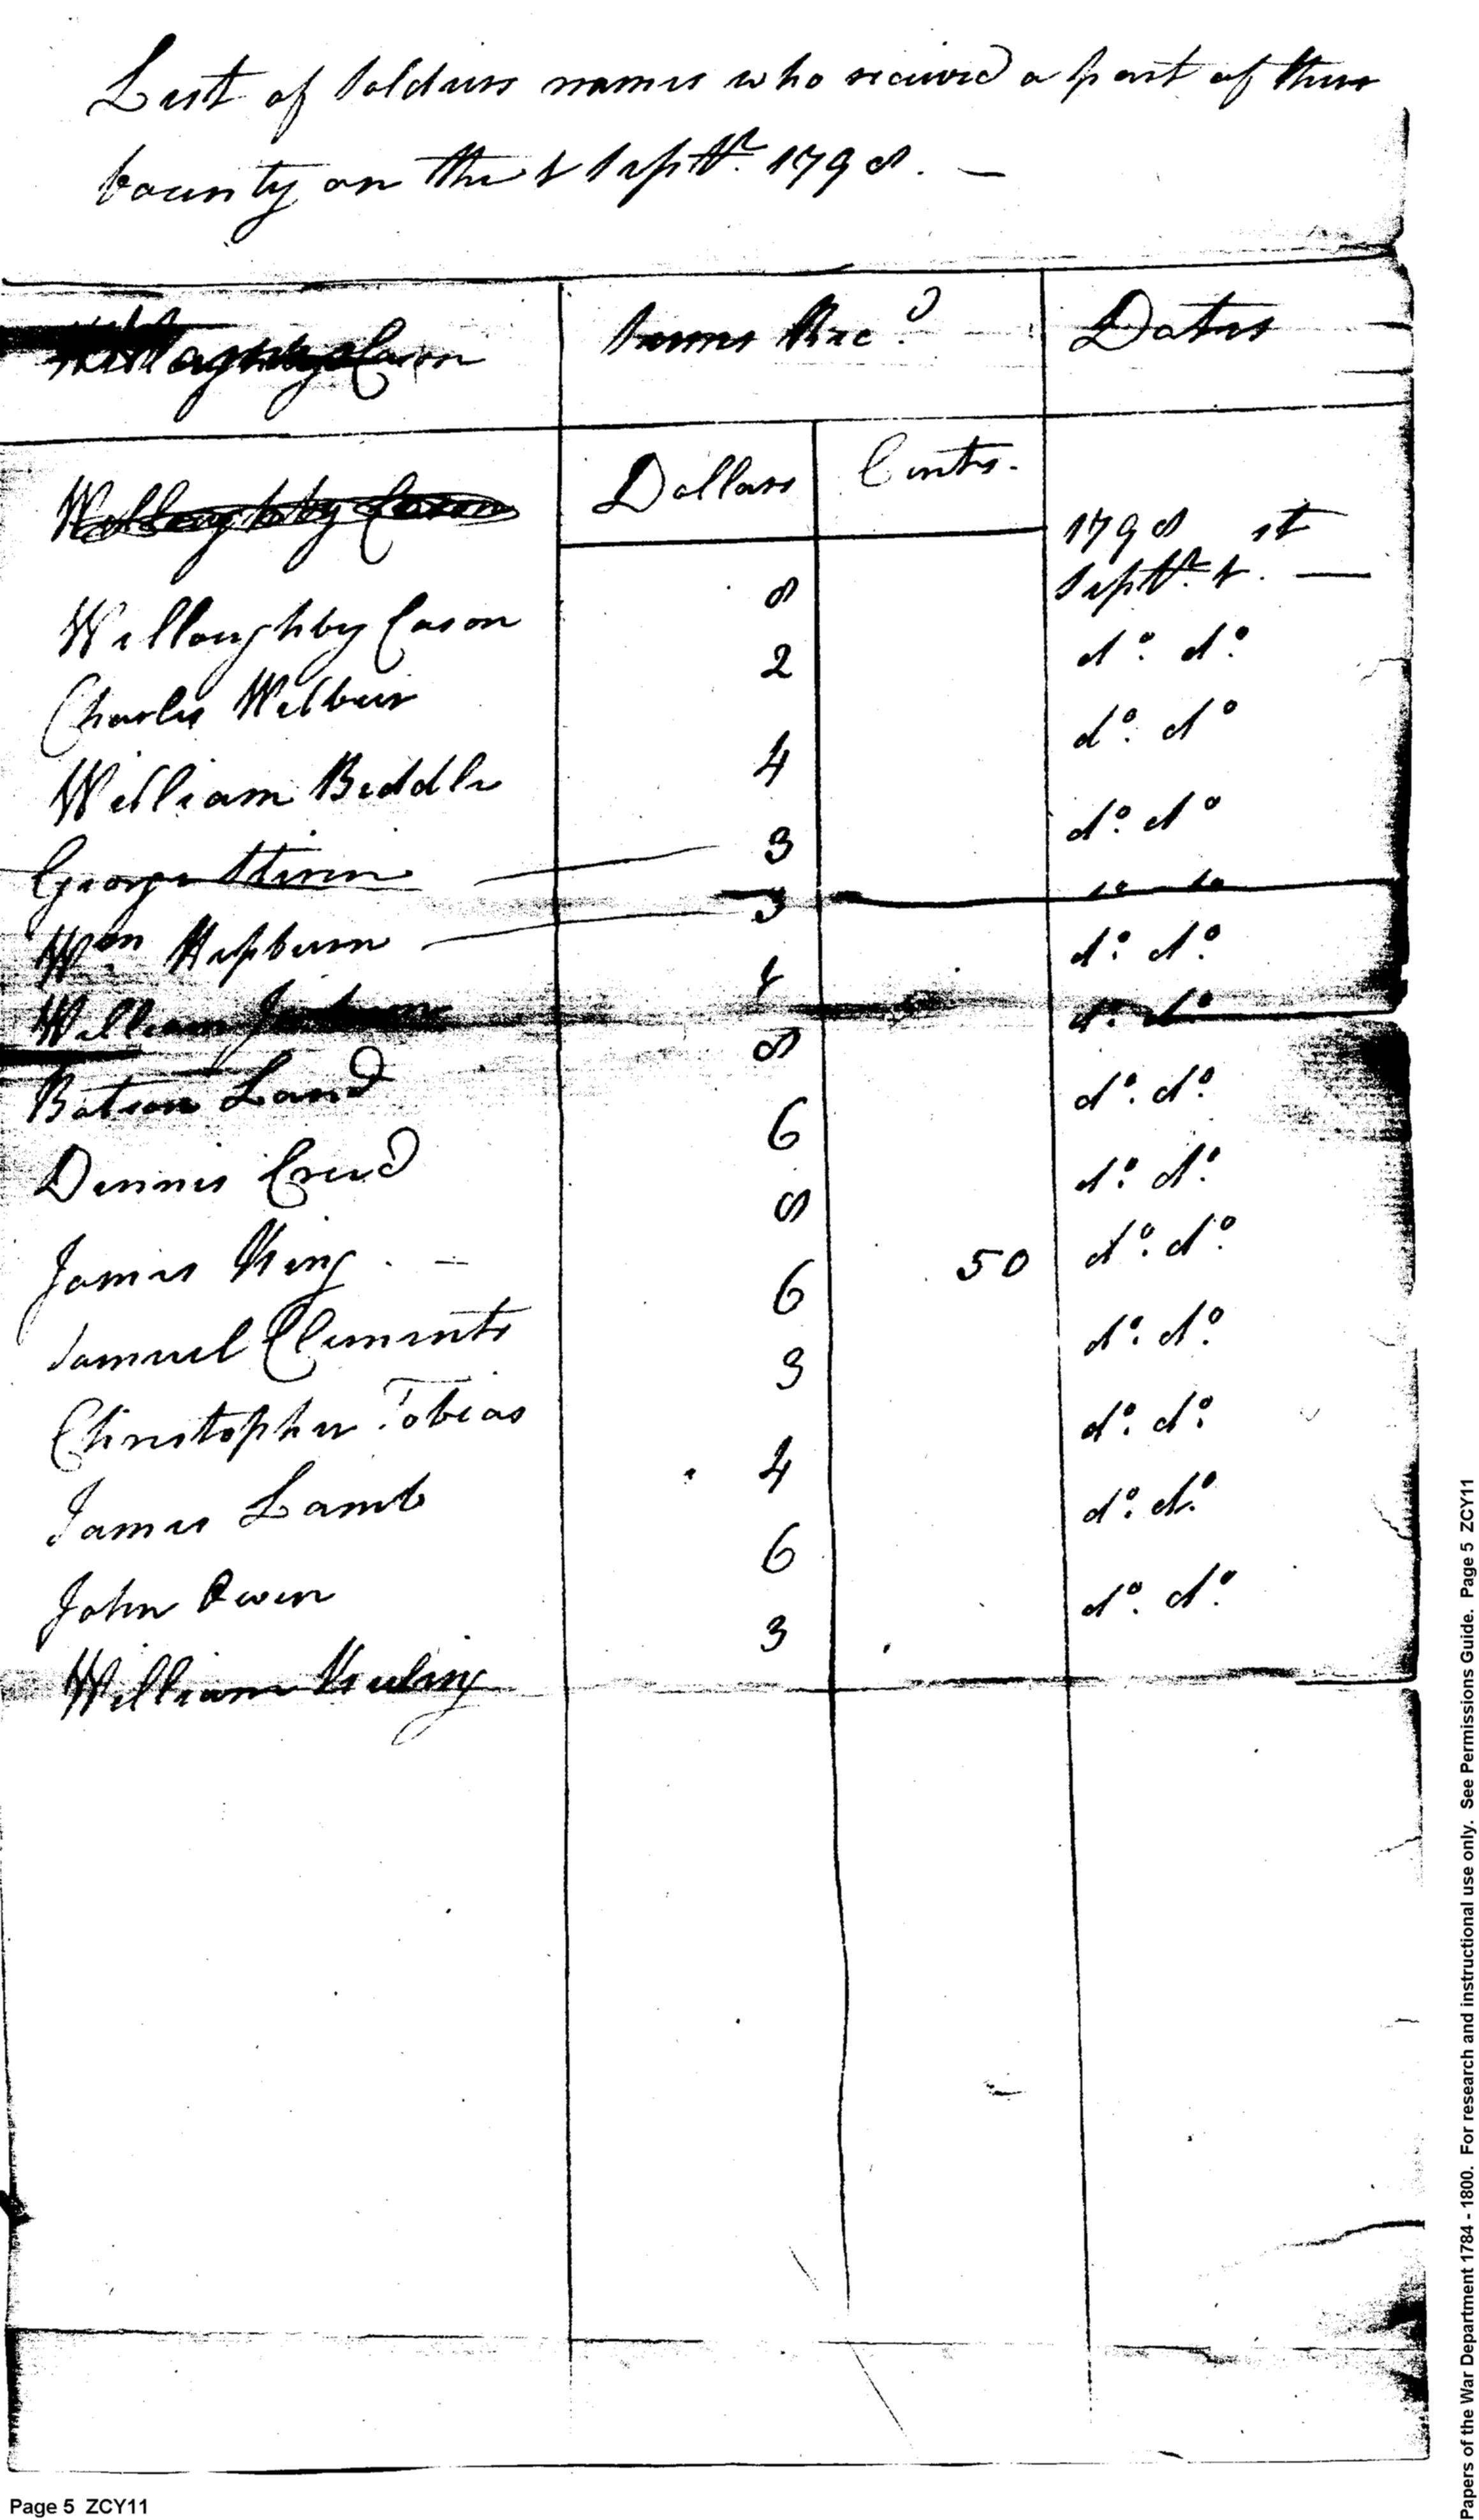 List of Soldiers names who received a part of their
bounty on the 1 Septr. 1798. —
Willoughby Cason
Sums Recd.
Dates
Dollars
Cents.
Willoughby Cason
1798 st
Septr. 1. —
Willoughby Cason 8
Charles Wilbur 2 do. do.
William Biddle 4 do. do
George 3 do. do
Wm Hepburn 3 do do
William 4 do. do.
Land 8 do. do.
Dennis Creed 6 do. do.
James King. — 8 do. do.
Samuel Clements 6 50 do. do.
Christopher Tobias 3 do. do.
James Lamb 4 do. do.
John Owen 6 do. do.
William Kuling 3 do. do.
Page 5 ZCY11
Papers of the War Department 1784 - 1800. For research and instructional use only. See Permissions Guide. Page 5 ZCY11